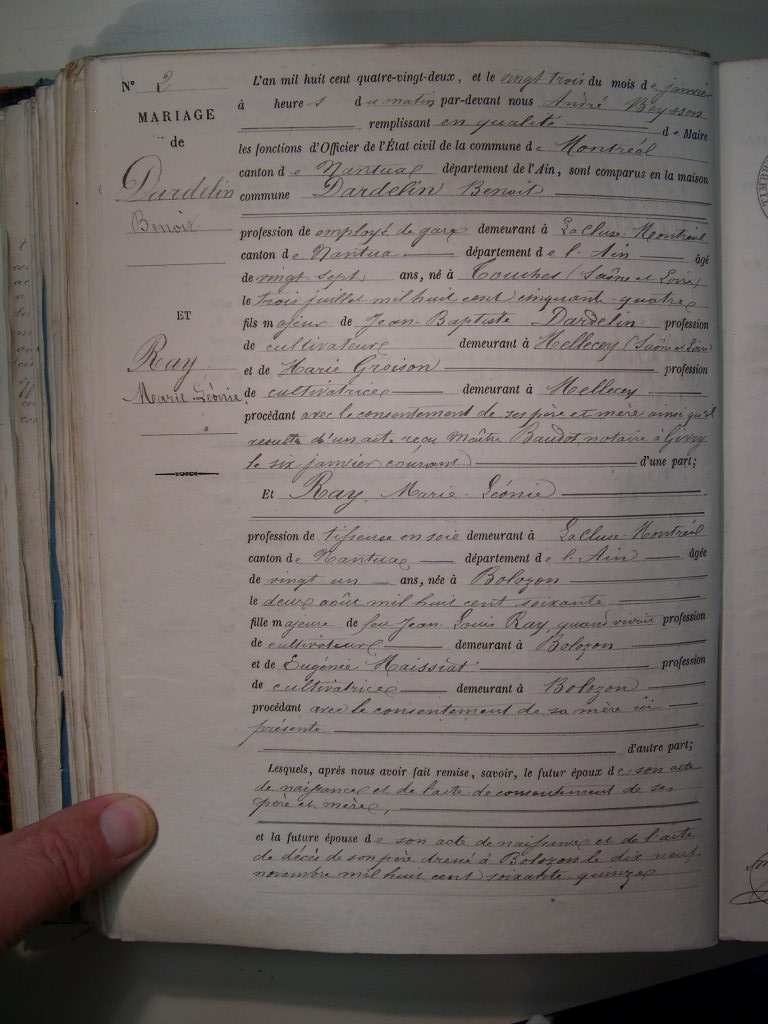 N° 2
MARIAGE
de
Dardelin
Benoit
ET
Ray
Marie Léonie
L'an mil huit cent quatre-vingt-deux, et le vingt trois du mois de janvier
à heure s du matin par-devant nous André Beysson
remplissant en qualité de Maire
les fonctions d'Officier de l'État civil de la commune de Montréal
canton de Nantua département de l'Ain, sont comparus en la maison
commune Dardelin Benoit
profession de employé de gare demeurant à La Cluse Montréal
canton de Nantua département de l'Ain âgé
de vingt sept ans, né à Touches (Saône et Loire)
le trois juillet mil huit cent cinquante quatre
fils majeur de Jean-Baptiste Dardelin profession
de cultivateur demeurant à Mellecey (Saône et Loire)
et de Marie Groison profession
de cultivatrice demeurant à Mellecey
procédant avec le consentement de ses père et mère ainsi qu'il
résulte d'un acte reçu Maître Baudot, notaire à Givry
le six janvier courant d'une part;
Et Ray Marie Léonie
profession de tisseuse en soie demeurant à La Cluse Montréal
canton de Nantua département de l'Ain âgée
de vingt un ans, née à Bolozon
le deux août mil huit cent soixante
fille majeure de feu Jean Louis Ray, quand vivait profession
de cultivateur demeurant à Bolozon
et de Eugénie Maissiat profession
de cultivatrice demeurant à Bolozon
procédant avec le consentement de sa mère ici
présente
d'autre part;
Lesquels, après nous avoir fait remise, savoir, le futur époux de son acte
de naissance et de l'acte de consentement de ses
père et mère,
et la future épouse de son acte de naissance et de l'acte
de décès de son père dressé à Bolozon le dix neuf
novembre mil huit cent soixante quinze